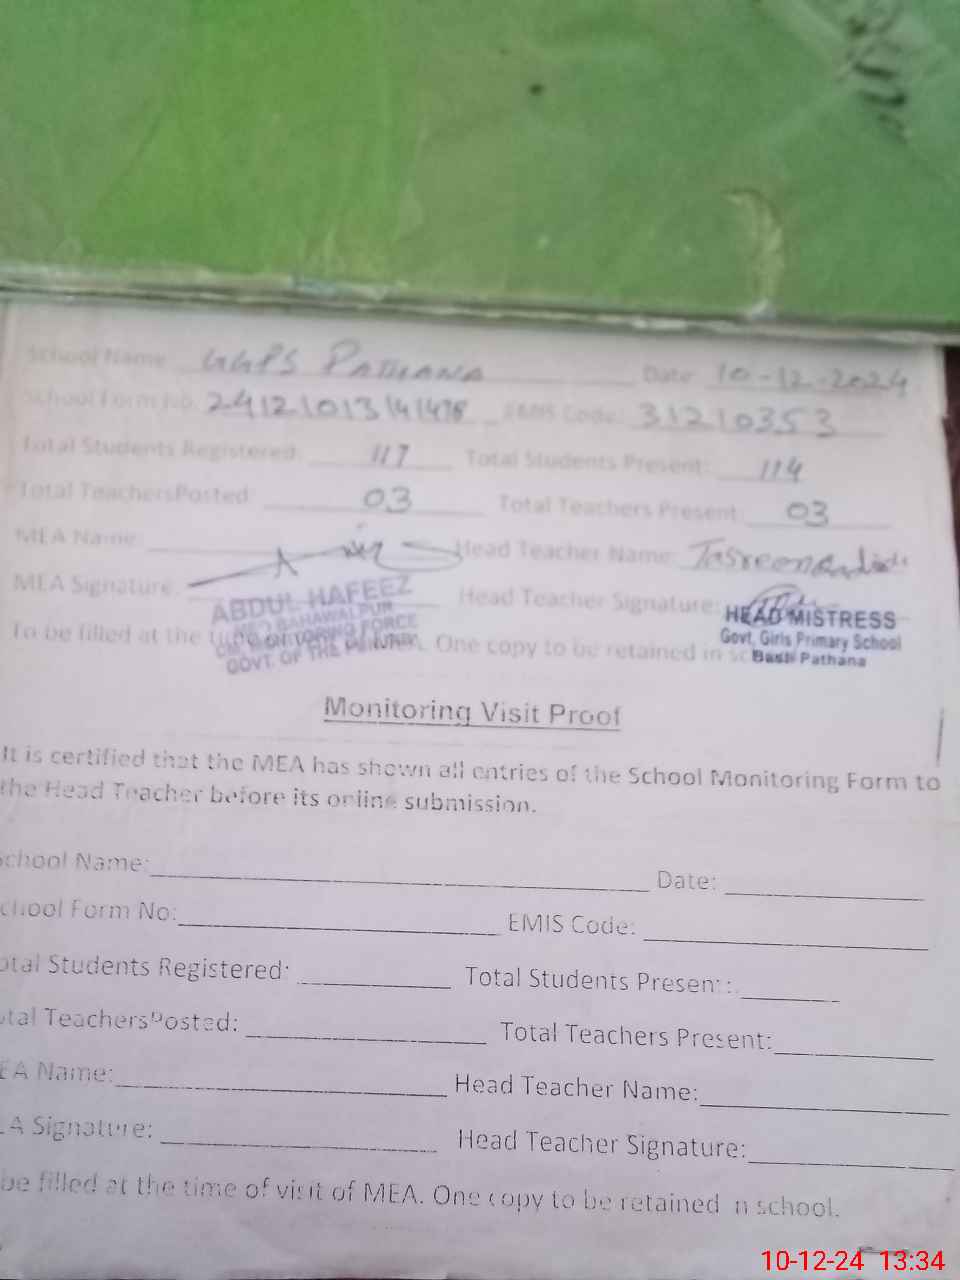 School Name GGPS PATHANA Date 10-12-2024
School Form No. EMIS Code: 31210353
Total Students Registered: 117 Total Students Present: 114
Total TeachersPosted 03 Total Teachers Present 03
MEA Name: Head Teacher Name
MEA Signature Head Teacher Signature:
ABDUL HAFEEZ
HEAD MISTRESS
BAHAWALPUR
FORCE
Govt. Girls Primary School
GOVT. OF THE PUNJAB
Basti Pathana
To be filled at the One copy to be retained in
Monitoring Visit Proof
It is certified that the MEA has shown all entries of the School Monitoring Form to
the Head Teacher before its online submission.
School Name: Date:
School Form No: EMIS Code:
otal Students Registered: Total Students Present:
otal TeachersPosted: Total Teachers Present:
EA Name: Head Teacher Name:
EA Signature: Head Teacher Signature:
be filled at the time of visit of MEA. One copy to be retained in school.
10-12-24 13:34